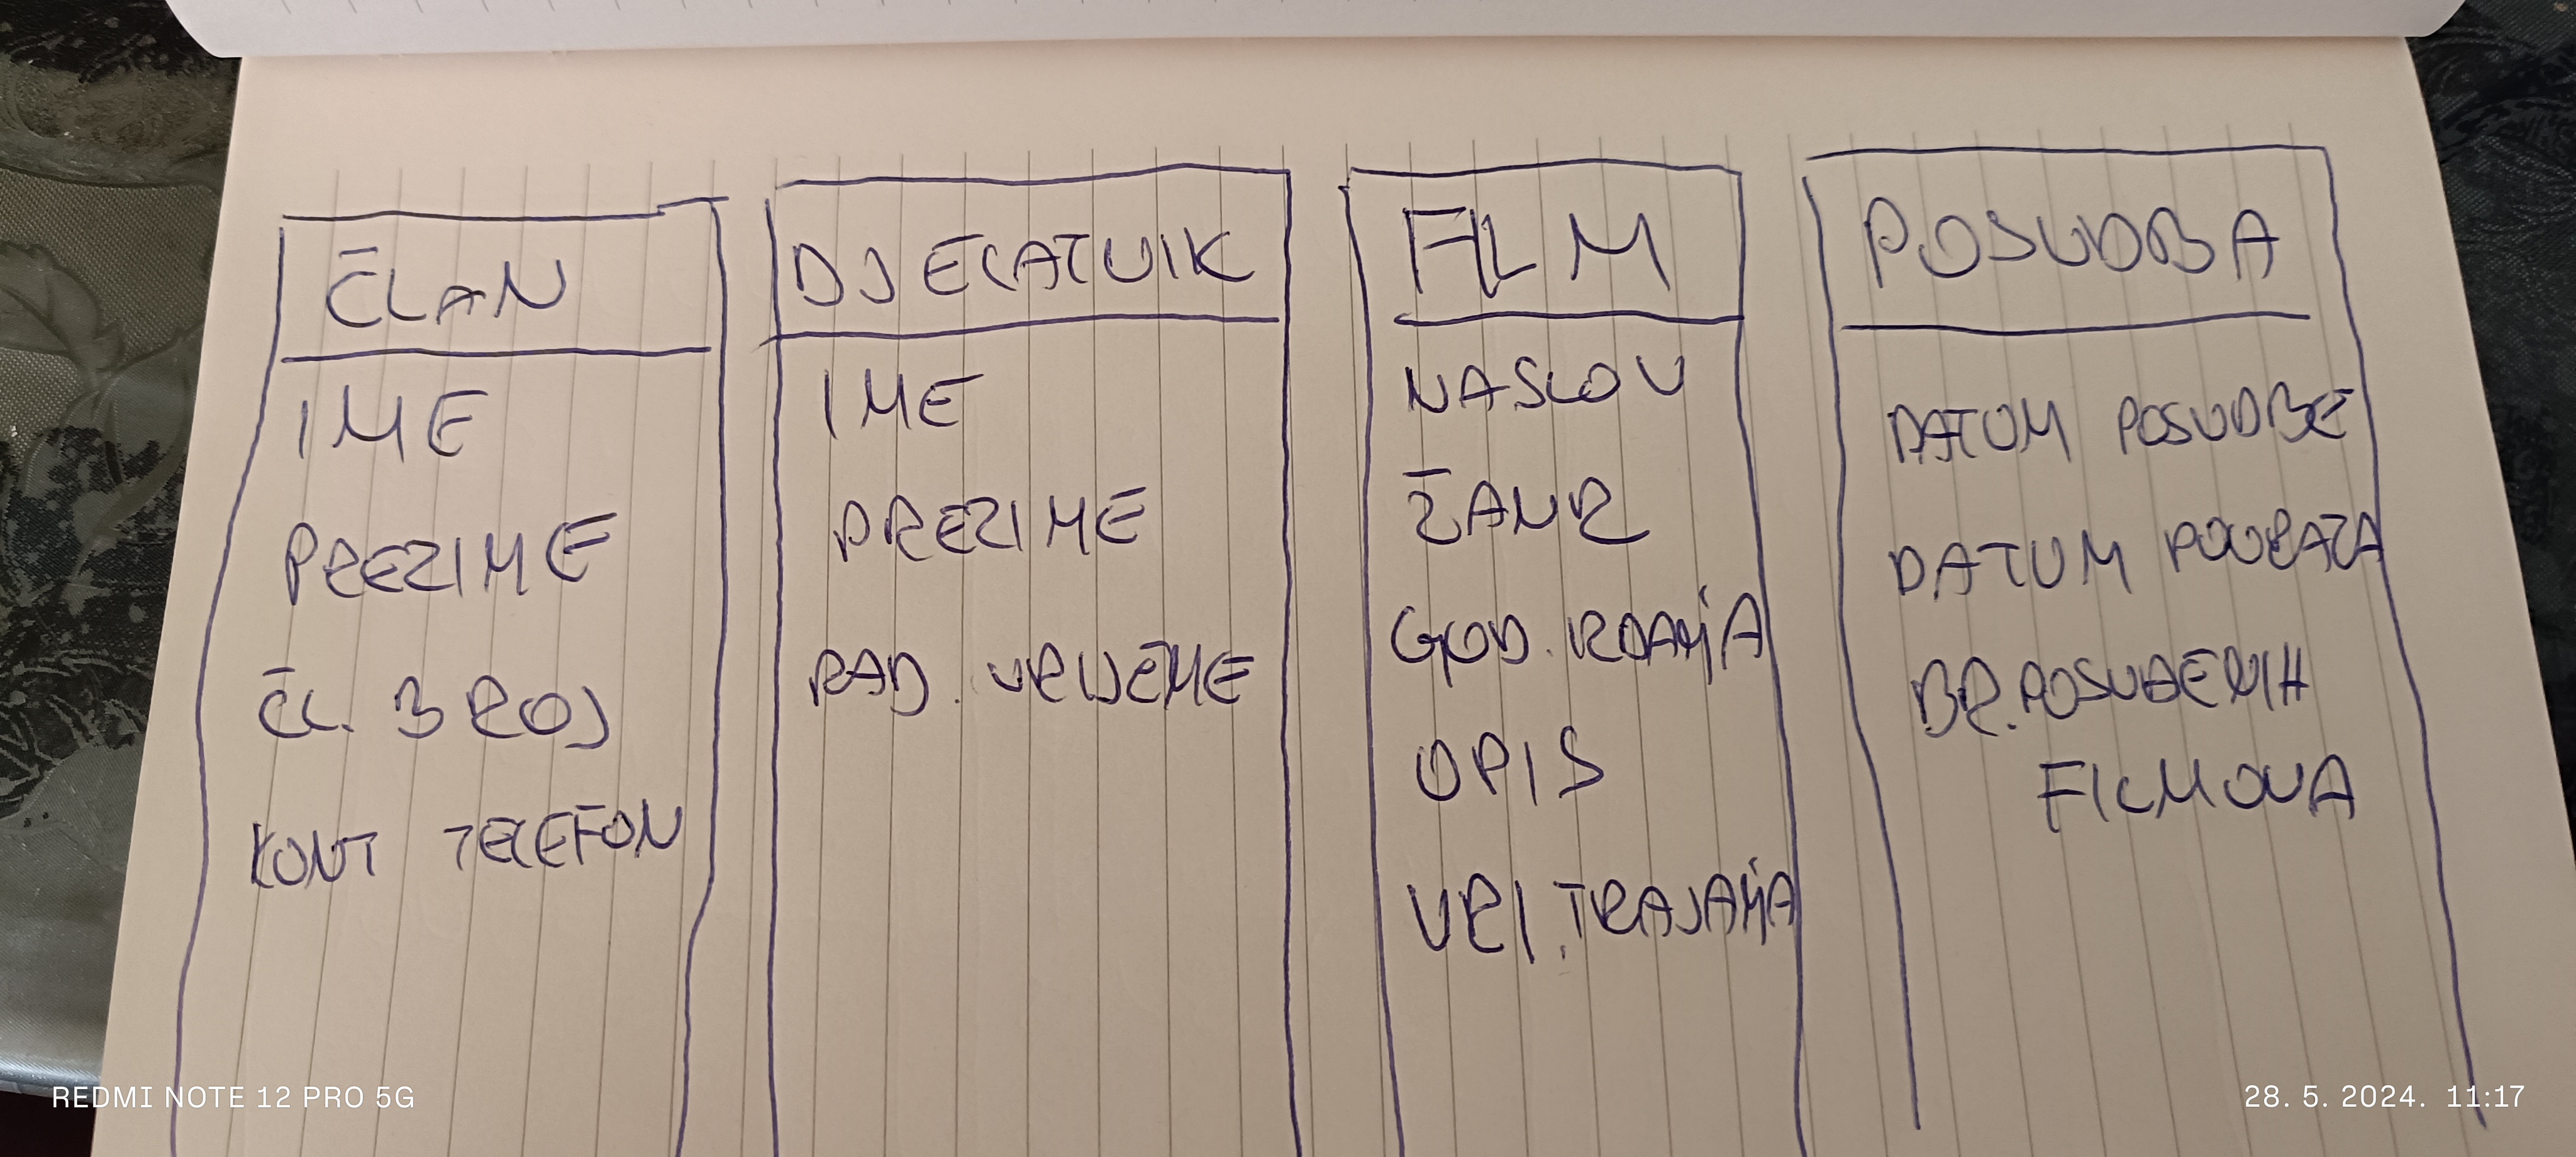 ČLAN
IME
PREZIME
ČL. BROJ
KONT TELEFON
DJELATNIK
IME
PREZIME
RAD. VRIJEME
FILM
NASLOV
ŽANR
GOD. IZDANJA
OPIS
VRI. TRAJANJA
POSUDBA
DATUM POSUDBE
DATUM POVRATA
BR. POSUĐENIH
FILMOVA
REDMI NOTE 12 PRO 5G
28. 5. 2024. 11:17